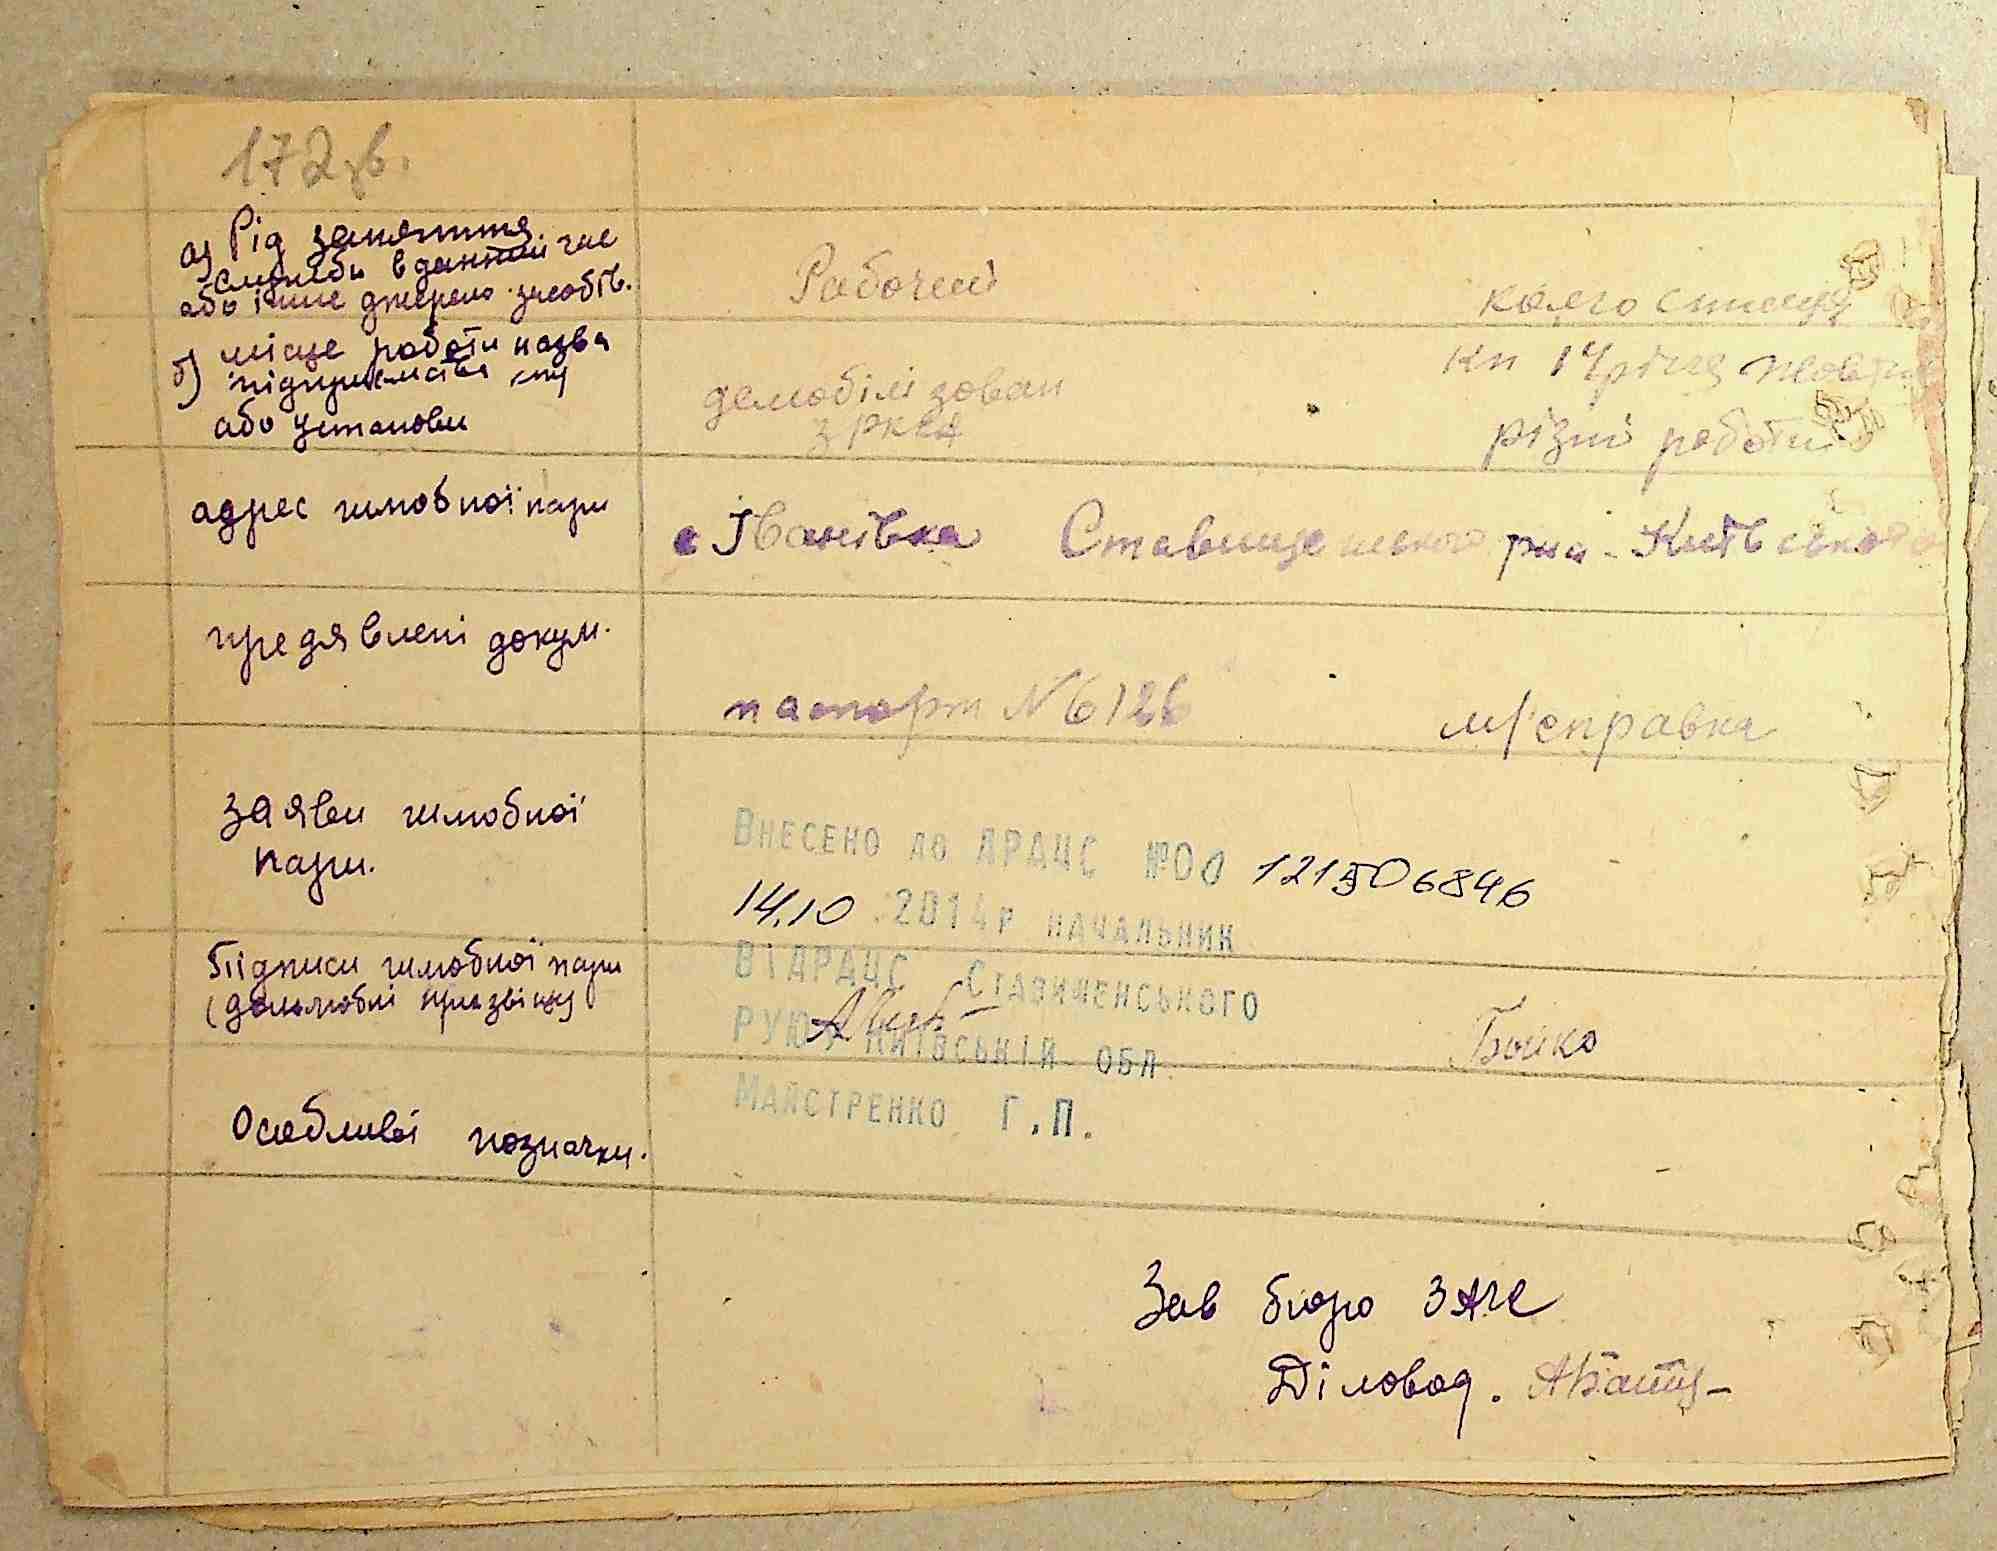 172 зв.
а) Рід заняття
служби в данний час
або інше джерело засобів.
Рабочий
колгоспниця
б) місце роботи назва
підприємства
або установи
демобілізован
з РККА
кп 17 річчя Жовтня
різні роботи
адрес шлюбної пари
с Іванівка Ставищенського р-на Київської
предявлені докум.
паспорт N 6126
м/справка
заяви шлюбної
пари.
Внесено до ДРАЦС №00 121506846
14.10 2014р начальник
ВІДРАЦС Ставищенського
РУЮ у Київській обл
Майстренко Г.П.
Підписи шлюбної пари
(дошлюбні призвіща)
Бойко
Особливі позначки.
Зав бюро ЗАГС
Діловод.